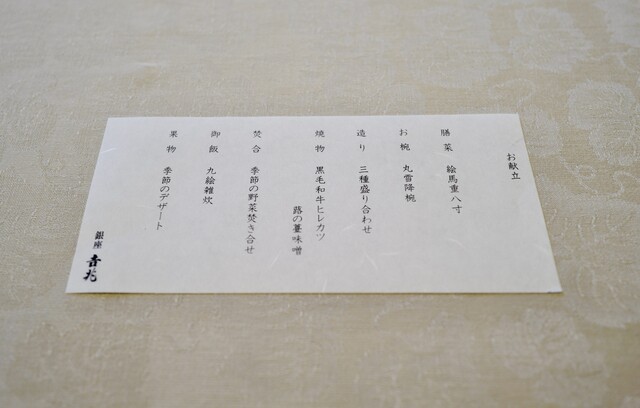 お献立
膳菜 絵馬重八寸
お椀 丸雪降椀
造り 三種盛り合わせ
焼物 黒毛和牛ヒレカツ
蕗の薹味噌
焚合 季節の野菜焚き合せ
御飯 九絵雑炊
果物 季節のデザート
銀座